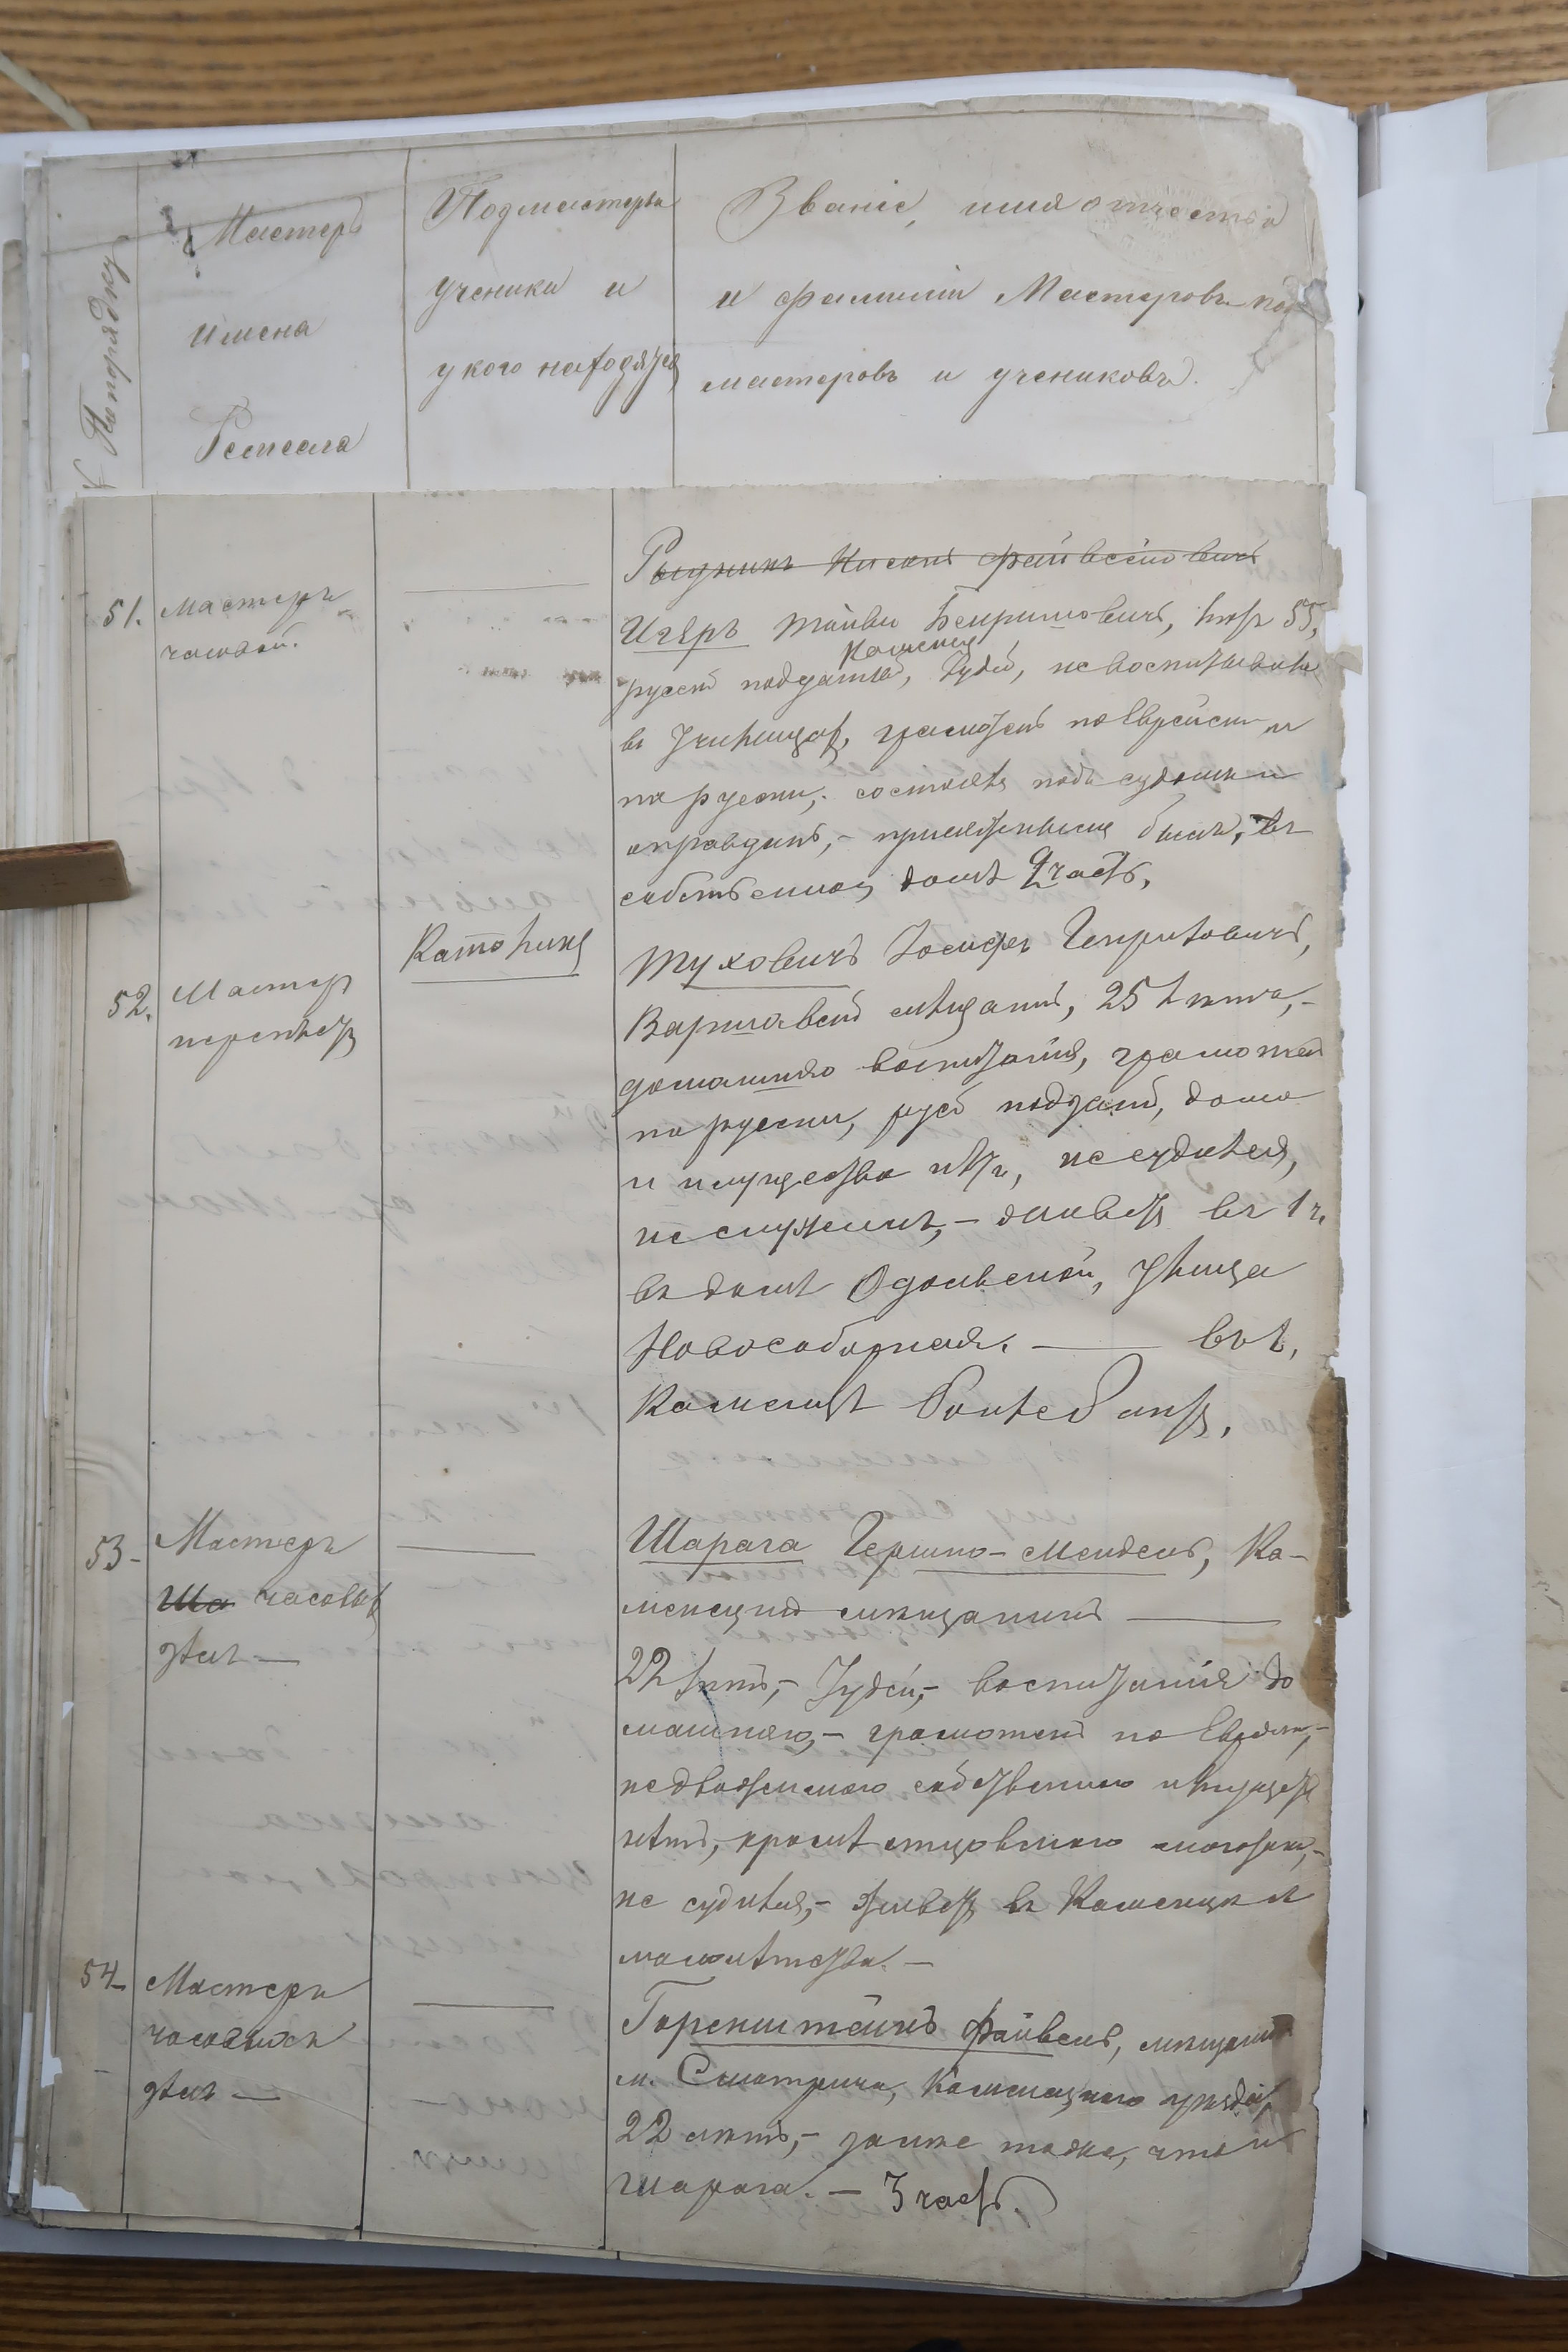 По порядку
Мастеръ
имена
Ремесла
Подмастерья
ученики и
у кого находятся
Званіе, имя отчества
и фамиліи Мастеровъ под
мастеровъ и учениковъ.
51.
Мастеръ
часовой.
Игеръ Лейбъ лѣтъ 55,
Каменец
русскій подданный, Іудей, не воспитывался
въ Училищах, грамотенъ по Еврейски и
по русски, состоялъ подъ судомъ и
оправданъ, – присяжнымъ былъ, въ
собственном домѣ 2 часть,
52.
Мастер
переплет
Католикъ
Туховичъ Іосифъ Генриховичъ,
Варшавскій мѣщанинъ, 25 лѣтъ, –
домашняго воспитанія, грамотен
по русски, русс подданный, дома
и имущества нѣт, не судился,
не служилъ, – живет въ 1 ч.
въ домѣ улица
Новособорная. — въ г.
Каменцѣ
53 -
Мастеръ
часовых
дѣлъ —
Шарага Гершко-Мендель, Ка-
менецкій мѣщанинъ —
22 лѣтъ, – Іудей, – воспитанія до
машняго, – грамотенъ по Еврейски, –
недвижимаго собственнаго имущест
нѣтъ, кромѣ отцовскаго –
не судился, – живет въ Каменцѣ с
малолѣтства. —
54 -
Мастеръ
часовыхъ
дѣлъ —
Горенштейнъ Файвель, мѣщанинъ
м. Смотрича, Каменецкаго уѣзда,
22 лѣтъ, – также что и
Шарага. — 3 часть.